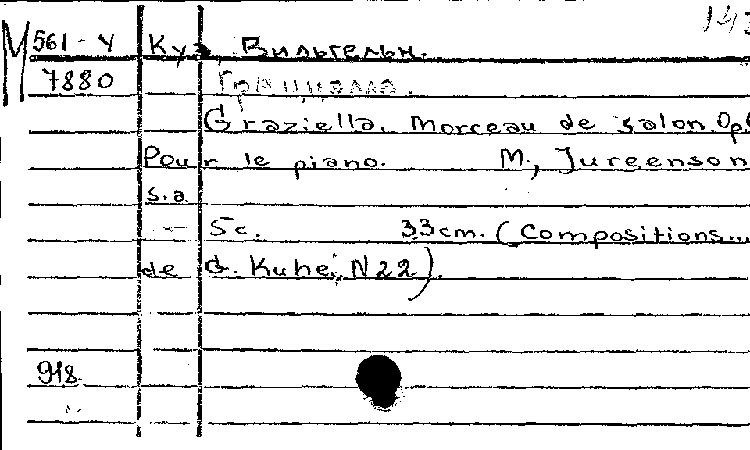 M 561-4 Куэ, Вильгельм.
7880 Грациелла.
Graziella. Morceau de salon. Op.
Pour le piano. M., Jurgenson
s.a
- 5c. 33cm. (Compositions...
de G. Kuhe, N22).
918